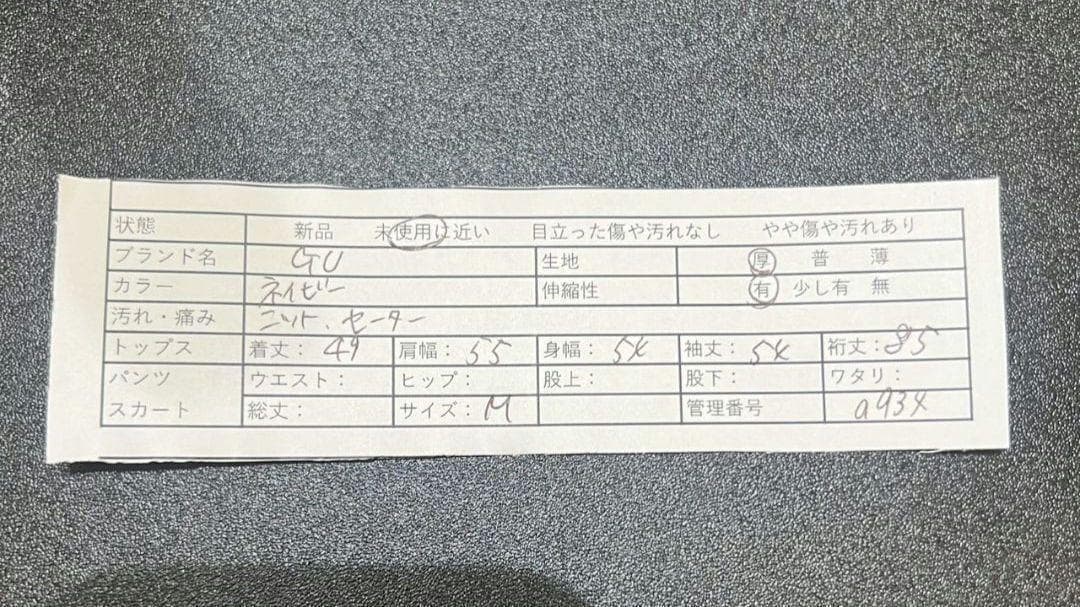 状態 新品 未使用に近い 目立った傷や汚れなし やや傷や汚れあり
ブランド名 GU 生地 厚 普 薄
カラー ネイビー 伸縮性 有 少し有 無
汚れ・痛み ニット、セーター
トップス 着丈：49 肩幅：55 身幅：54 袖丈：54 裄丈：85
パンツ ウエスト： ヒップ： 股上： 股下： ワタリ：
スカート 総丈： サイズ：M 管理番号 a934